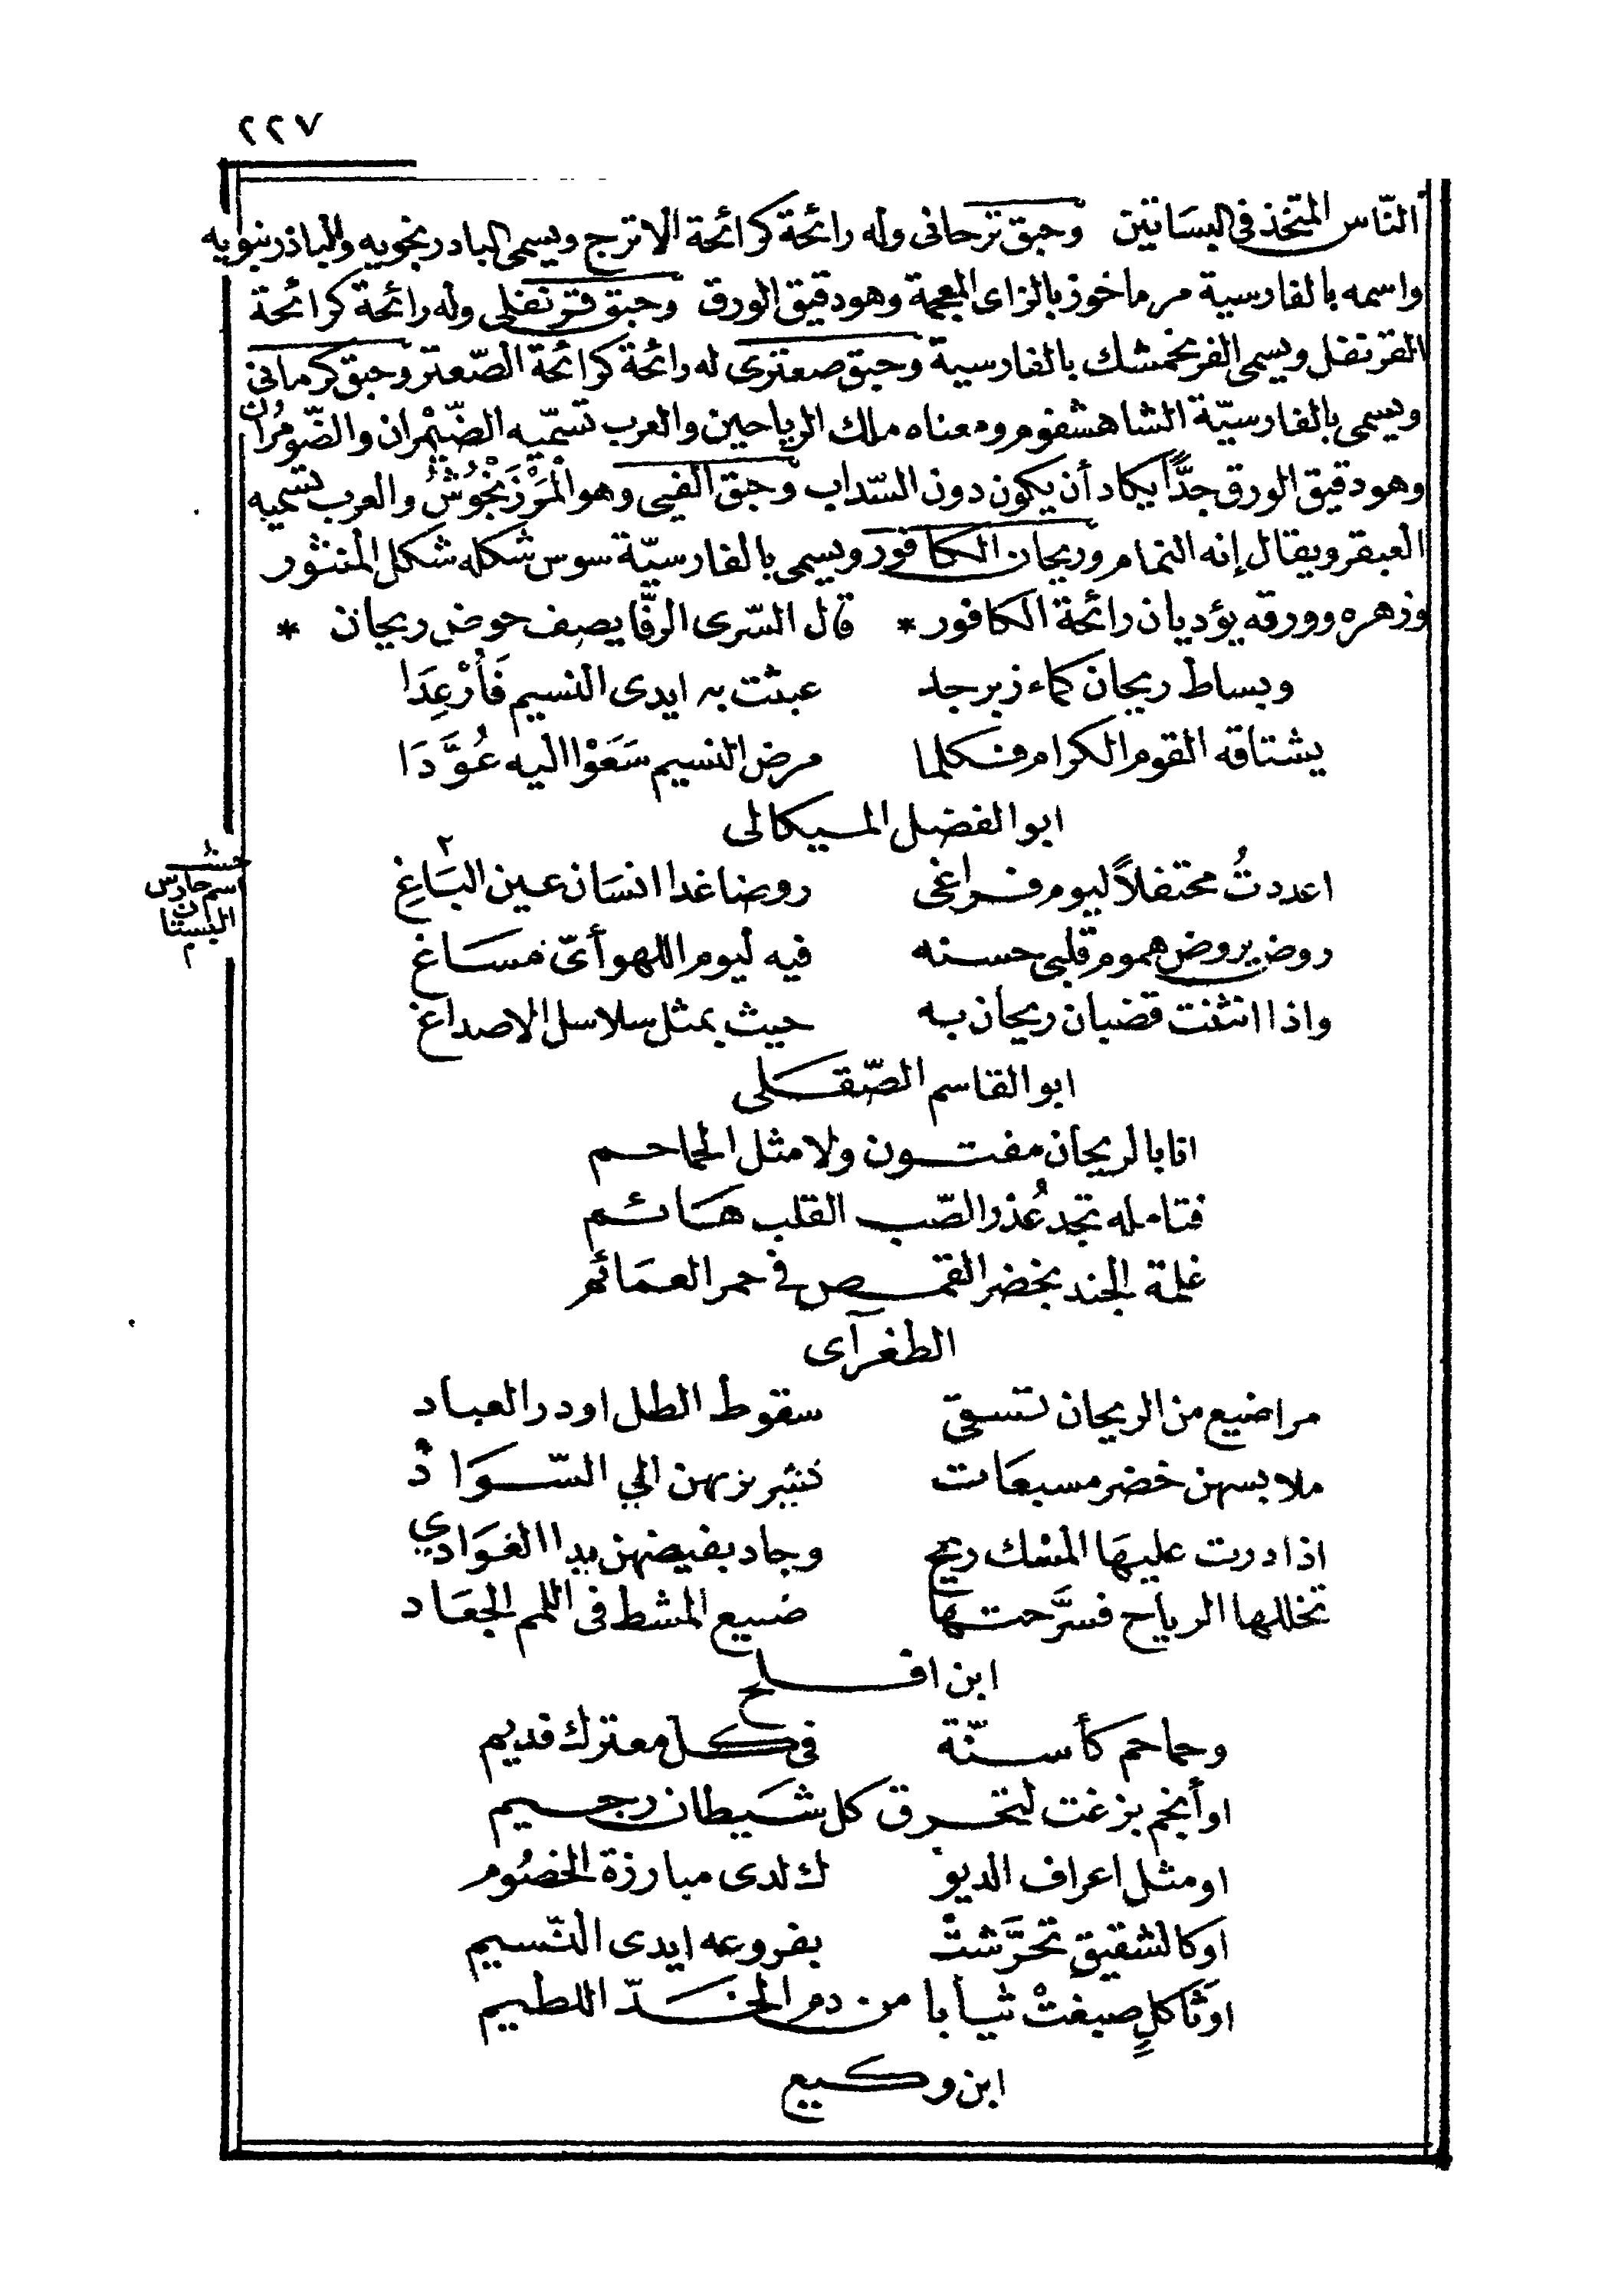 ٢٢٧
النّاس المتخذ فى البسَاتين وحبق ترحانى وله رائحة كرائحة الاترج ويسمى البادرنجويه والباذرنبويه
واسمه بالفارسية مرماخوز بالزاى المعجمة وهو دقيق الورق وحبق قرنفلى وله رائحة كرائحة
القرنفل ويسمى الفرنجمشك بالفارسية وحبق صعترى له رائحة كرائحة الصّعتر وحبق كرمانى
ويسمى بالفارسيّة الشاهشفوم ومعناه ملك الرياحين والعرب تسمّيه الضّيْمران والضّومُران
وهو دقيق الورق جدًّا يكاد أن يكون دون السّداب وحبق الفيى وهو الْمَرْزَنْجُوشُ والعرب تسميه
العبقر ويقال إنه النمام وريحان الكافور ويسمى بالفارسيّة سوسن شكله شكل المنثور
وزهره وورقه يؤديان رائحة الكافور * قال السّرى الرفّا يصف حوض ريحان *
وبساط ريحان كماء زبرجد عبثت به ايدى النسيم فَأُرْعِدَا
يشتاقه القوم الكرام فكلما مرض النسيم سَعَوْا اليه عُوَّدَا
ابو الفضل الميكالى
اعددتُ محتفلاً ليوم فراغى روضا غدا انسَان عين البَاغِ ٢
حشـ
اسم حارس
البستان
م
روض يروض هموم قلبى حسنه فيه ليوم اللهو أىّ مسَاغ
واذا انثنت قضبان ريحان به حيث بمثل سلاسل الاصداغ
ابو القاسم الصّقَلى
انا بالريحان مفتون ولا مثل الجماحم
فتامله تجد عُذر الصّب القلب هَائم
غلمة الجند بخضر القمص فى حمر العمَائم
الطغرآى
مراضيع من الريحان تسقى سقوط الطل او در العباد
ملابسهن خضر مسبعات تشير بزيهن الي السّوَاد
اذا درت عليهَا المسْك ريح وجاد بفيضهن يدا الغوَادي
تخللها الرياح فسرَّحتهَا صنيع المشط فى اللمم الجعَاد
ابن افلح
وحماحم كأسنّة فى كل معترك قديم
او أنجم بزغت لتحرق كل شيطان رجيم
او مثل اعراف الديو ك لدى مبارزة الخصُوم
او كالشقيق تحرَّشتْ بفروعه ايدى النّسيم
او ثَاكلٍ صبغتْ ثيابا من دم الخدّ اللطيم
ابن وكيع